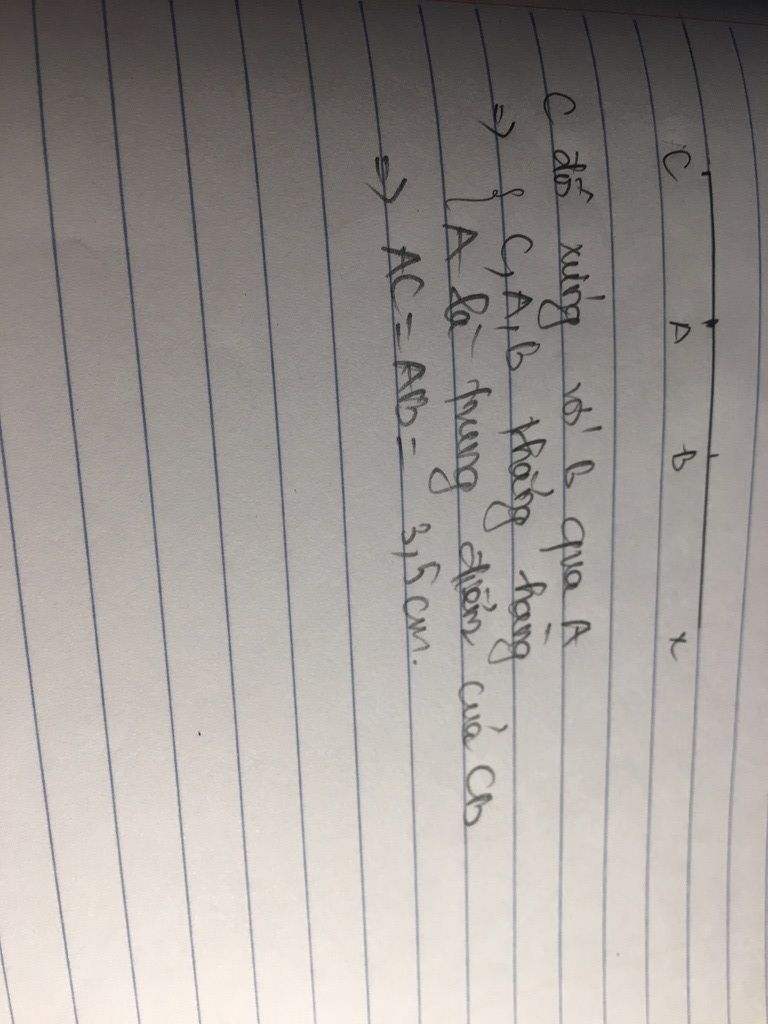 C A B x
C đối xứng với B qua A
=> { C, A, B thẳng hàng
A là trung điểm của CB
=> AC = AB = 3,5 cm.